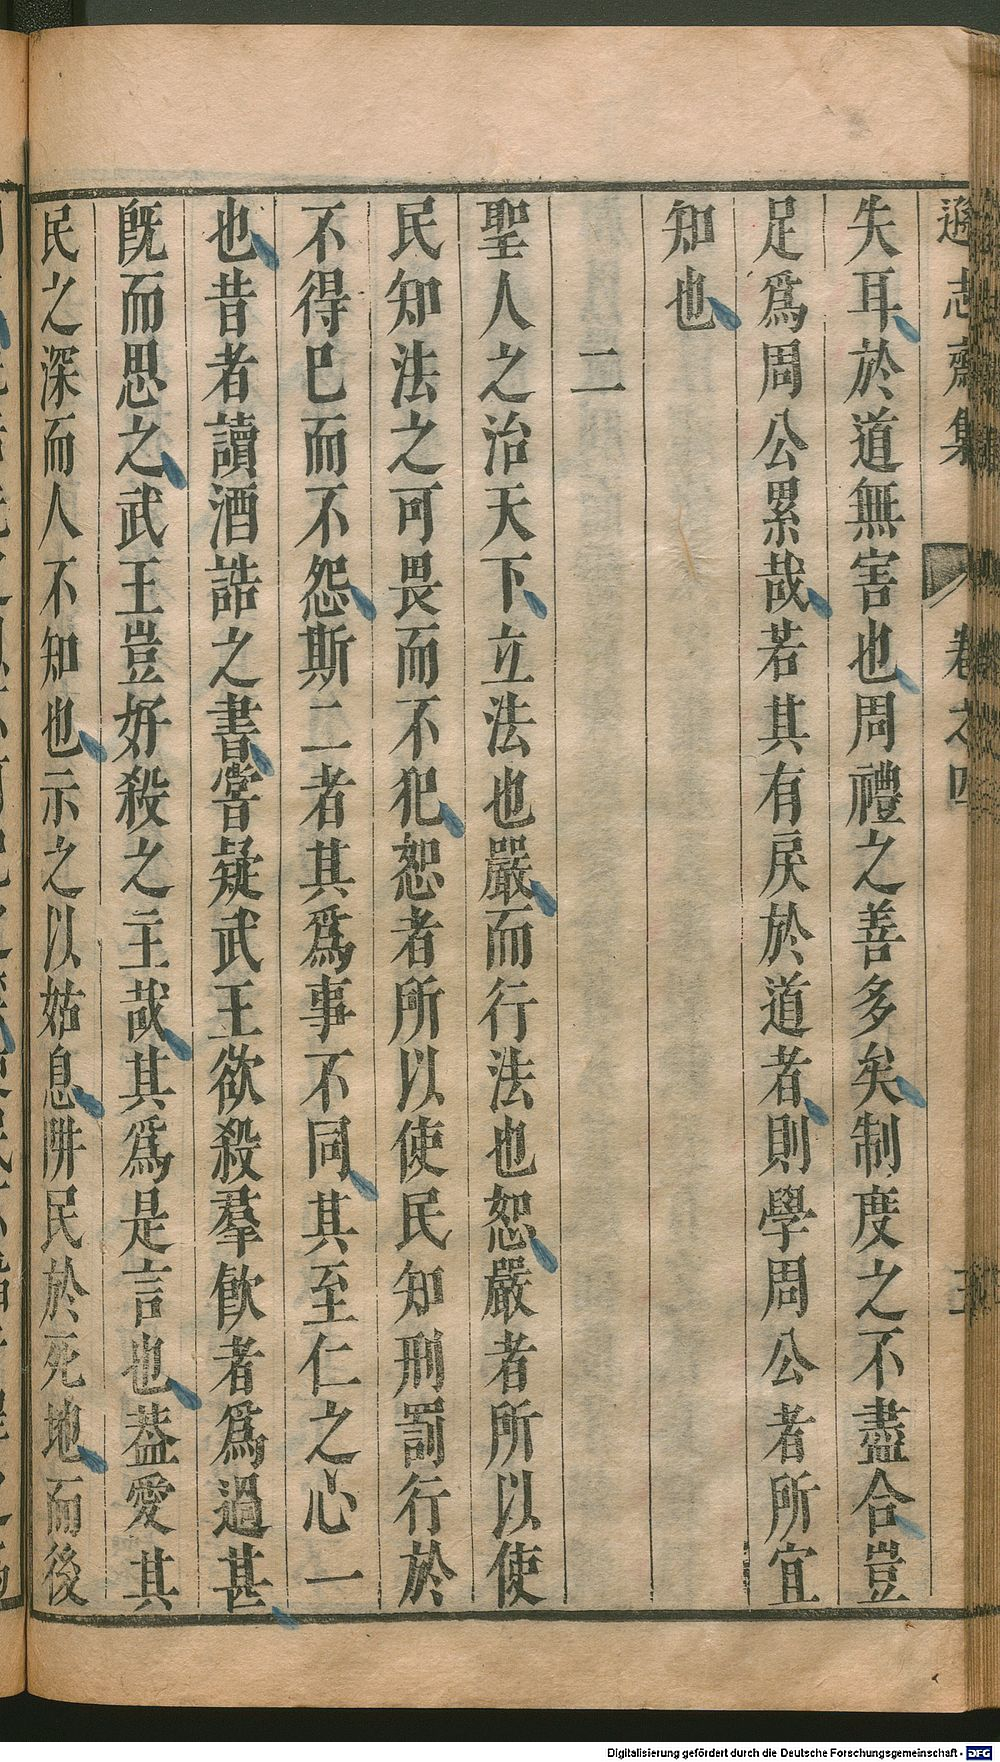 遜志齋集 卷之四
失耳於道無害也周禮之善多矣制度之不盡合豈
足爲周公累哉若其有戾於道者則學周公者所宜
知也
二
聖人之治天下立法也嚴而行法也恕嚴者所以使
民知法之可畏而不犯恕者所以使民知刑罰行於
不得巳而不怨斯二者其爲事不同其至仁之心一
也昔者讀酒誥之書嘗疑武王欲殺羣飮者爲過甚
旣而思之武王豈好殺之主哉其爲是言也葢愛其
民之深而人不知也示之以姑息陷民於死地而後
Digitalisierung gefördert durch die Deutsche Forschungsgemeinschaft - DFG